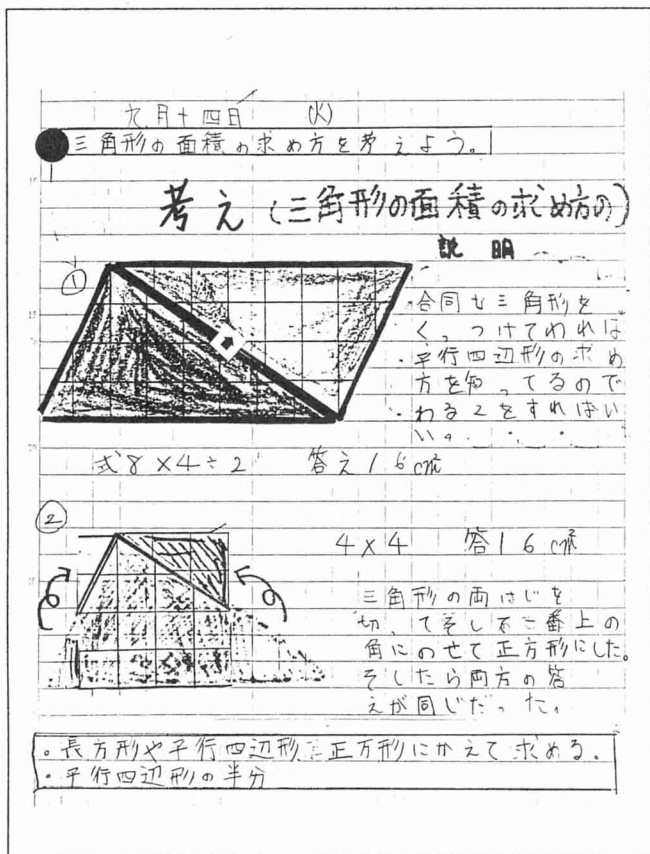 九月十四日 (火)
三角形の面積の求め方を考えよう。
考え(三角形の面積の求め方の)
説明
①
合同な三角形を
くっつけてわれば
平行四辺形の求め
方を知ってるので
わる2をすればい
い。
式8×4÷2 答え16cm²
②
4×4 答16cm²
三角形の両はじを
切ってそして一番上の
角にのせて正方形にした。
そしたら両方の答
えが同じだった。
・長方形や平行四辺形、正方形にかえて求める。
・平行四辺形の半分